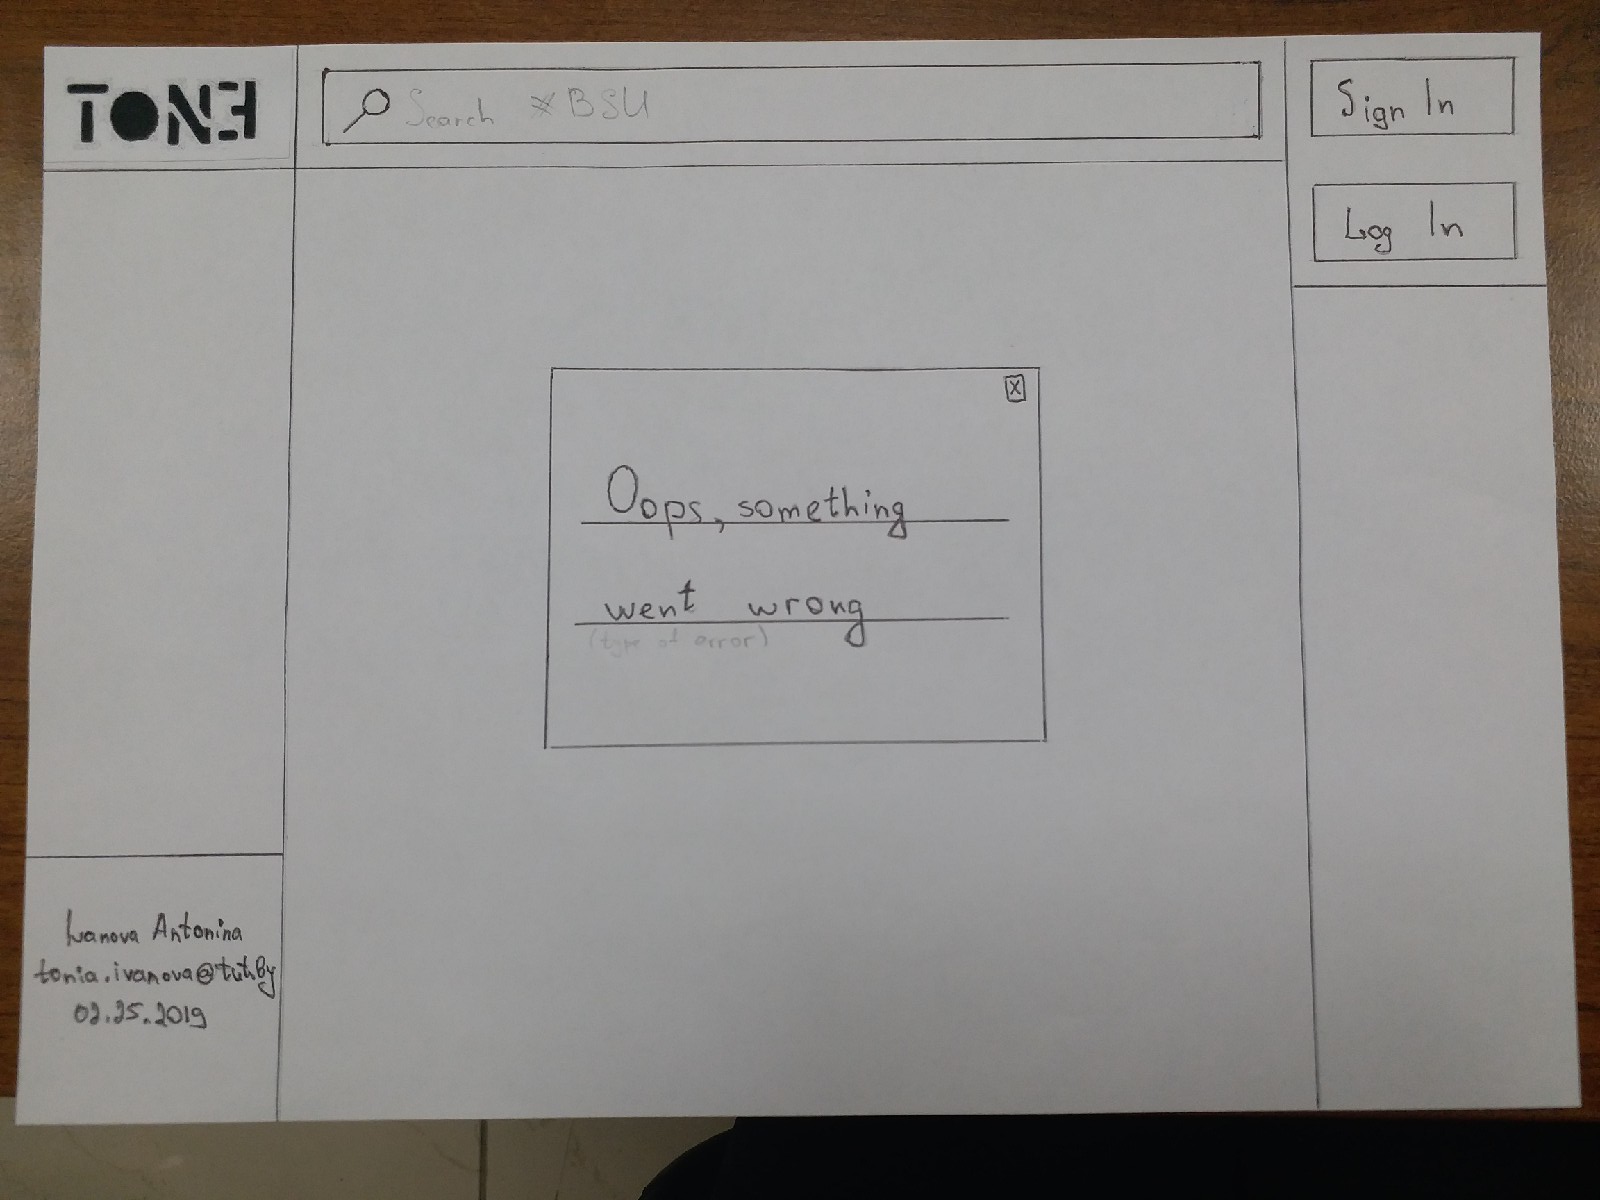 TONE
Search *BSU
Sign In
Log In
X
Oops, something
went wrong
(type of error)
Ivanova Antonina
tonia.ivanova@tut.by
02.25.2019